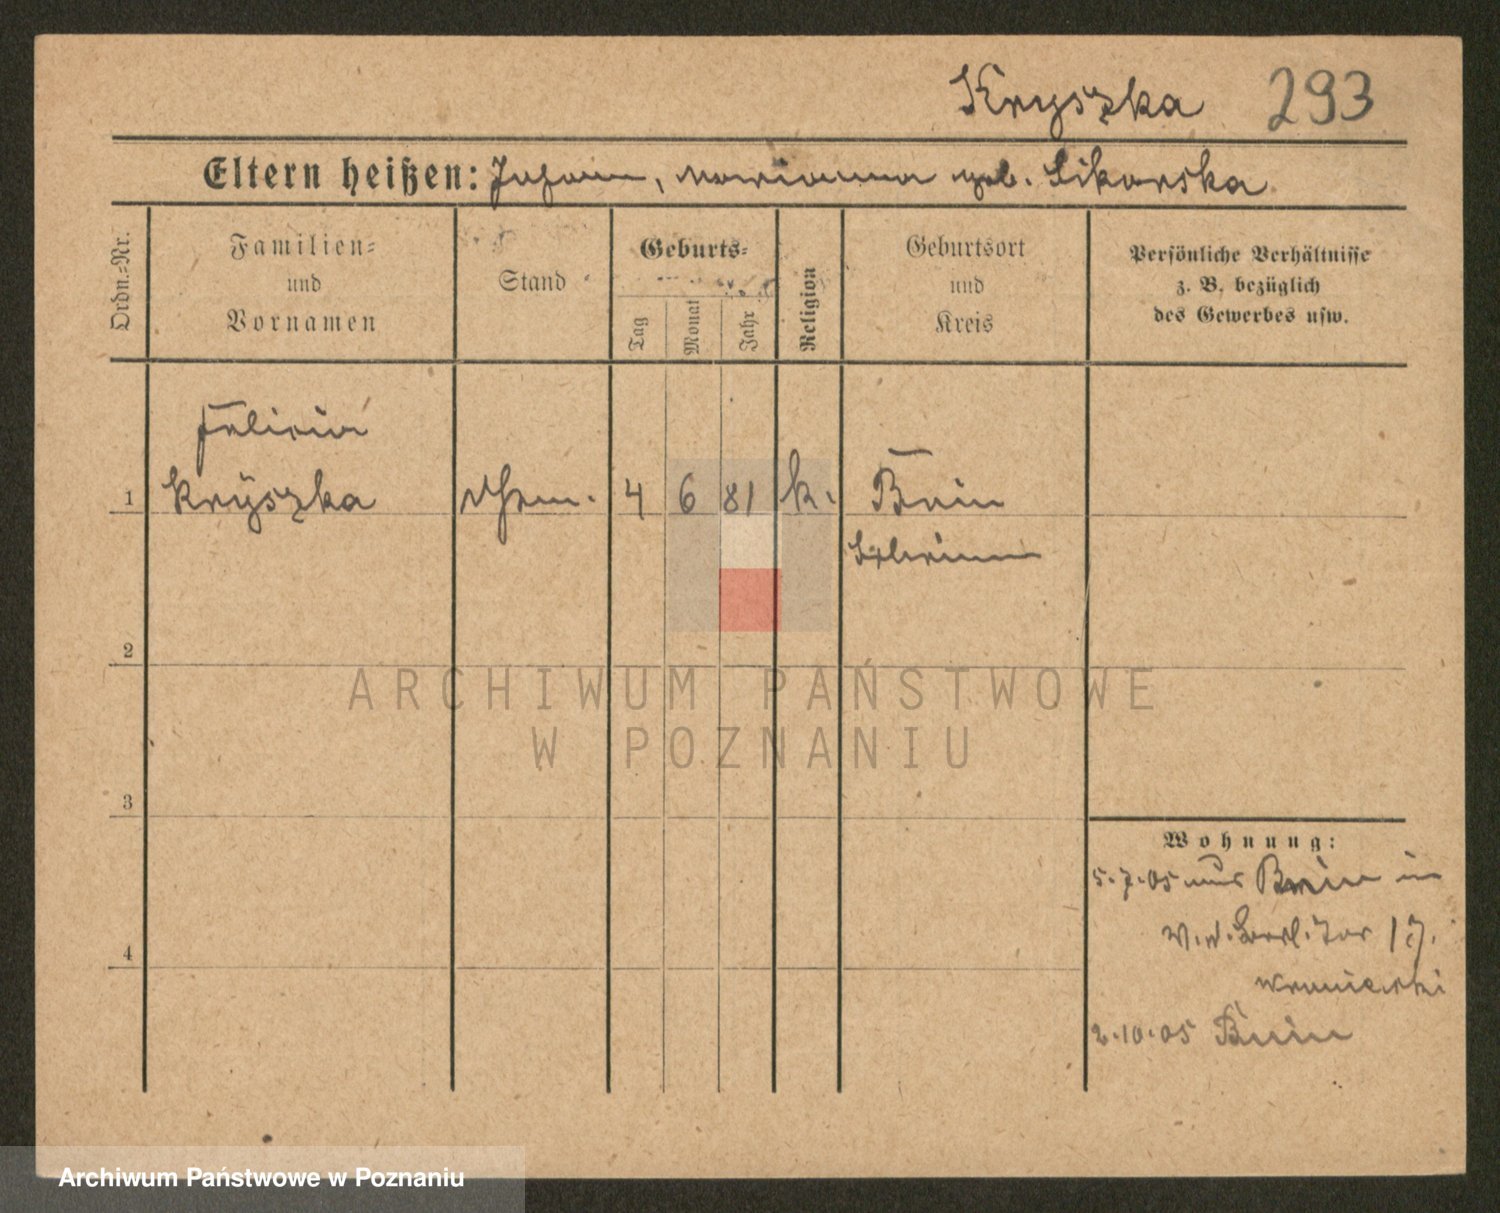 Kryszka 293
Eltern heißen: Johann, Marianna geb. Sikorska
Ordn.-Nr.
Familien-
und
Vornamen
Stand
Geburts-
Tag
Monat
Jahr
Religion
Geburtsort
und
Kreis
Persönliche Verhältnisse
z. B. bezüglich
des Gewerbes usw.
Felicia
1 Kryszka 4 6 81 k. Bnin
Schrimm
2
ARCHIWUM PAŃSTWOWE
W POZNANIU
3
Wohnung:
5.7.05 aus Bnin in
17.
4
2.10.05 Bnin
Archiwum Państwowe w Poznaniu